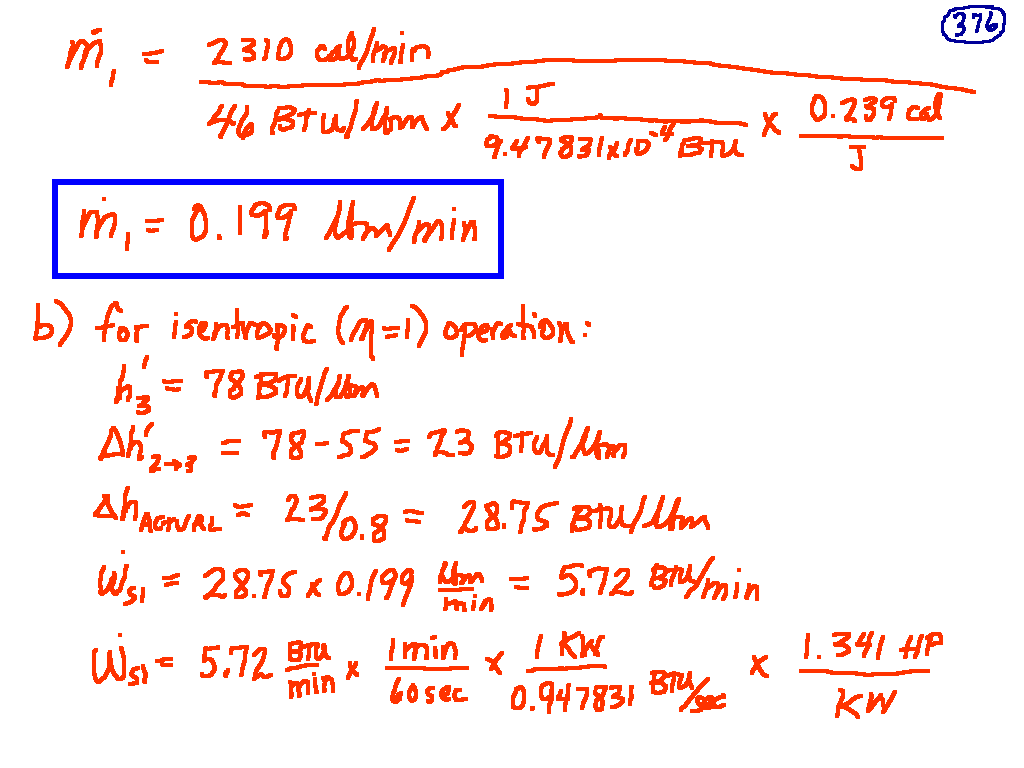 376
ṁ₁ = 2310 cal/min / (46 BTU/lbm x 1 J / 9.47831x10⁻⁴ BTU x 0.239 cal / J)
ṁ₁ = 0.199 lbm/min
b) for isentropic (η=1) operation:
h₃' = 78 BTU/lbm
Δh'₂→₃ = 78-55 = 23 BTU/lbm
Δh_ACTUAL = 23/0.8 = 28.75 BTU/lbm
Ẇs₁ = 28.75 x 0.199 lbm/min = 5.72 BTU/min
Ẇs₁ = 5.72 BTU/min x 1 min/60 sec x 1 KW/0.947831 BTU/sec x 1.341 HP/KW